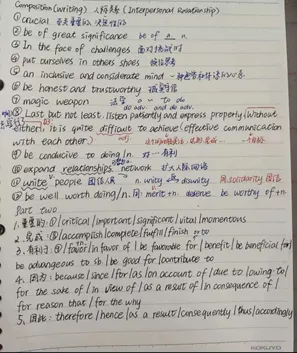 Composition(writing) 人际关系 (Interpersonal Relationship)
① crucial 至关重要的, 决定性的
② be of great significance be of a n.
③ In the face of challenges 面对挑战时
④ put ourselves in others shoes 换位思考
⑤ an inclusive and considerate mind 一种包容和体谅的心态
⑥ be honest and trustworthy 诚实守信
⑦ magic weapon 法宝
⑧ Last but not least, listen patiently and express properly (without
either, it is quite difficult to achieve effective communication
with each other)
⑨ be conducive to doing/n. 对…有利
⑩ expand relationships network 扩大人际网络
⑪ unite people 团结人民 n. unity disunity 同 solidarity 团结
⑫ be well worth doing/n. 同: merit + n. deserve be worthy of +n.
Part two
1. 重要的: critical/important/significant/vital/momentous
2. 完成: accomplish/complete/fulfill/finish
3. 有利于: favor/in favor of/be favorable for/benefit/be beneficial for/
be advangeous to sb/be good for/contribute to
4. 因为: because/since/for/as/on account of/due to/owing to/
for the sake of/in view of/as a result of/in consequence of/
for reason that/for the why
5. 因此: therefore/hence/as a result/consequently/thus/accordingly
KOKUYO